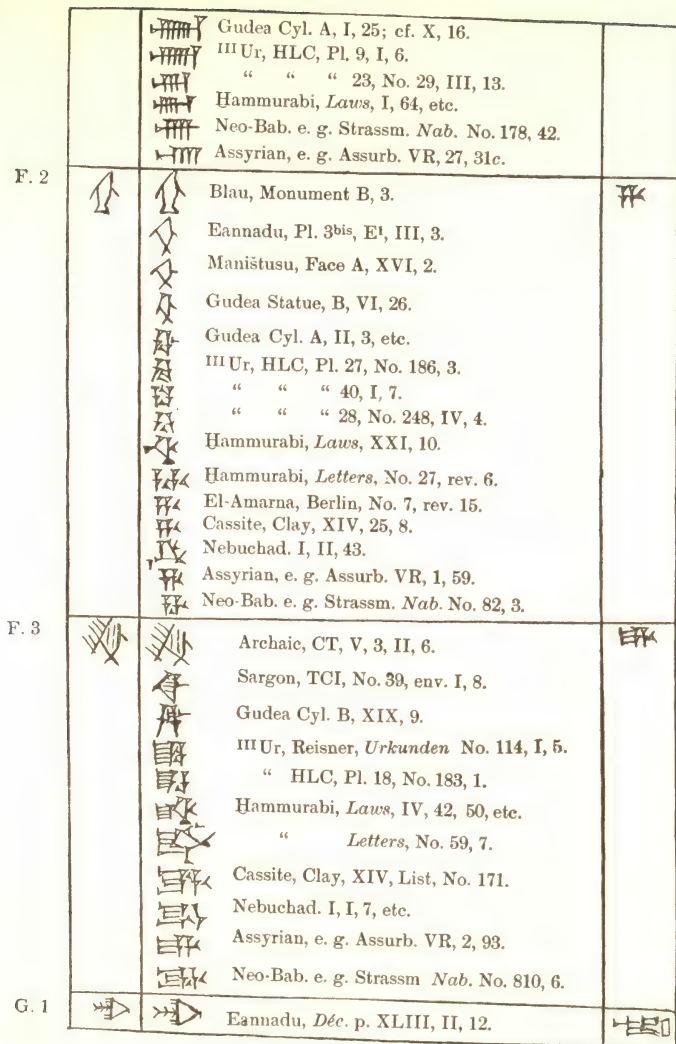 Gudea Cyl. A, I, 25; cf. X, 16.
III Ur, HLC, Pl. 9, I, 6.
“ “ “ 23, No. 29, III, 13.
Ḫammurabi, Laws, I, 64, etc.
Neo-Bab. e. g. Strassm. Nab. No. 178, 42.
Assyrian, e. g. Assurb. VR, 27, 31c.
F. 2 Blau, Monument B, 3.
Eannadu, Pl. 3bis, E¹, III, 3.
Maništusu, Face A, XVI, 2.
Gudea Statue, B, VI, 26.
Gudea Cyl. A, II, 3, etc.
III Ur, HLC, Pl. 27, No. 186, 3.
“ “ “ 40, I, 7.
“ “ “ 28, No. 248, IV, 4.
Ḫammurabi, Laws, XXI, 10.
Ḫammurabi, Letters, No. 27, rev. 6.
El-Amarna, Berlin, No. 7, rev. 15.
Cassite, Clay, XIV, 25, 8.
Nebuchad. I, II, 43.
Assyrian, e. g. Assurb. VR, 1, 59.
Neo-Bab. e. g. Strassm. Nab. No. 82, 3.
F. 3 Archaic, CT, V, 3, II, 6.
Sargon, TCI, No. 39, env. I, 8.
Gudea Cyl. B, XIX, 9.
III Ur, Reisner, Urkunden No. 114, I, 5.
“ HLC, Pl. 18, No. 183, 1.
Ḫammurabi, Laws, IV, 42, 50, etc.
“ Letters, No. 59, 7.
Cassite, Clay, XIV, List, No. 171.
Nebuchad. I, I, 7, etc.
Assyrian, e. g. Assurb. VR, 2, 93.
Neo-Bab. e. g. Strassm Nab. No. 810, 6.
G. 1 Eannadu, Déc. p. XLIII, II, 12.